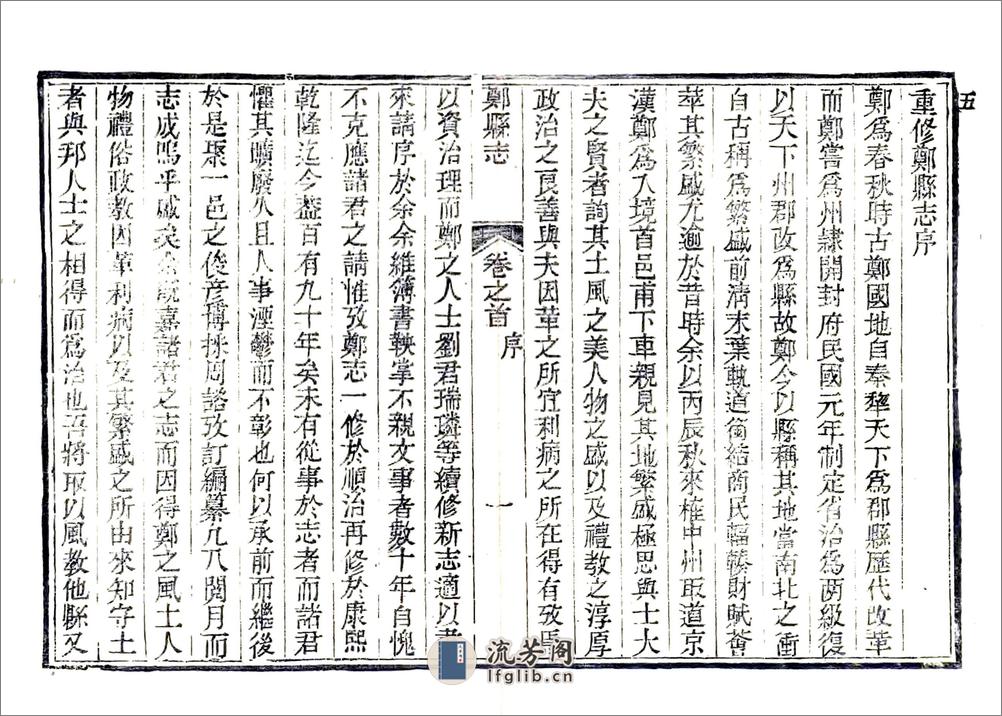 五
重修鄭縣志序
鄭爲春秋時古鄭國地自秦犂天下爲郡縣歷代改革
而鄭嘗爲州隸開封府民國元年制定省治爲兩級復
以天下州郡改爲縣故鄭今以縣稱其地當南北之衝
自古稱爲繁盛前淸末葉軌道銜結商民輻輳財賦薈
萃其繁盛尤逾於昔時余以丙辰秋來榷中州取道京
漢鄭爲入境首邑甫下車親見其地繁盛極思與士大
夫之賢者詢其土風之美人物之盛以及禮教之淳厚
政治之良善與夫因革之所宜利病之所在得有攷焉
鄭縣志
卷之首
序
一
以資治理而鄭之人士劉君瑞璘等續修新志適以書
來請序於余余維簿書鞅掌不親文事者數十年自愧
不克應諸君之請惟攷鄭志一修於順治再修於康熙
乾隆迄今蓋百有九十年矣未有從事於志者而諸君
懼其曠廢久且人事湮鬱而不彰也何以承前而繼後
於是聚一邑之俊彦博採周諮攷訂編纂凡八閱月而
志成嗚乎盛矣余旣嘉諸君之志而因得鄭之風士人
物禮俗政教因革利病以及其繁盛之所由來知守土
者與邦人士之相得而爲治也吾將取以風教他縣又
流芳阁
lfglib.cn